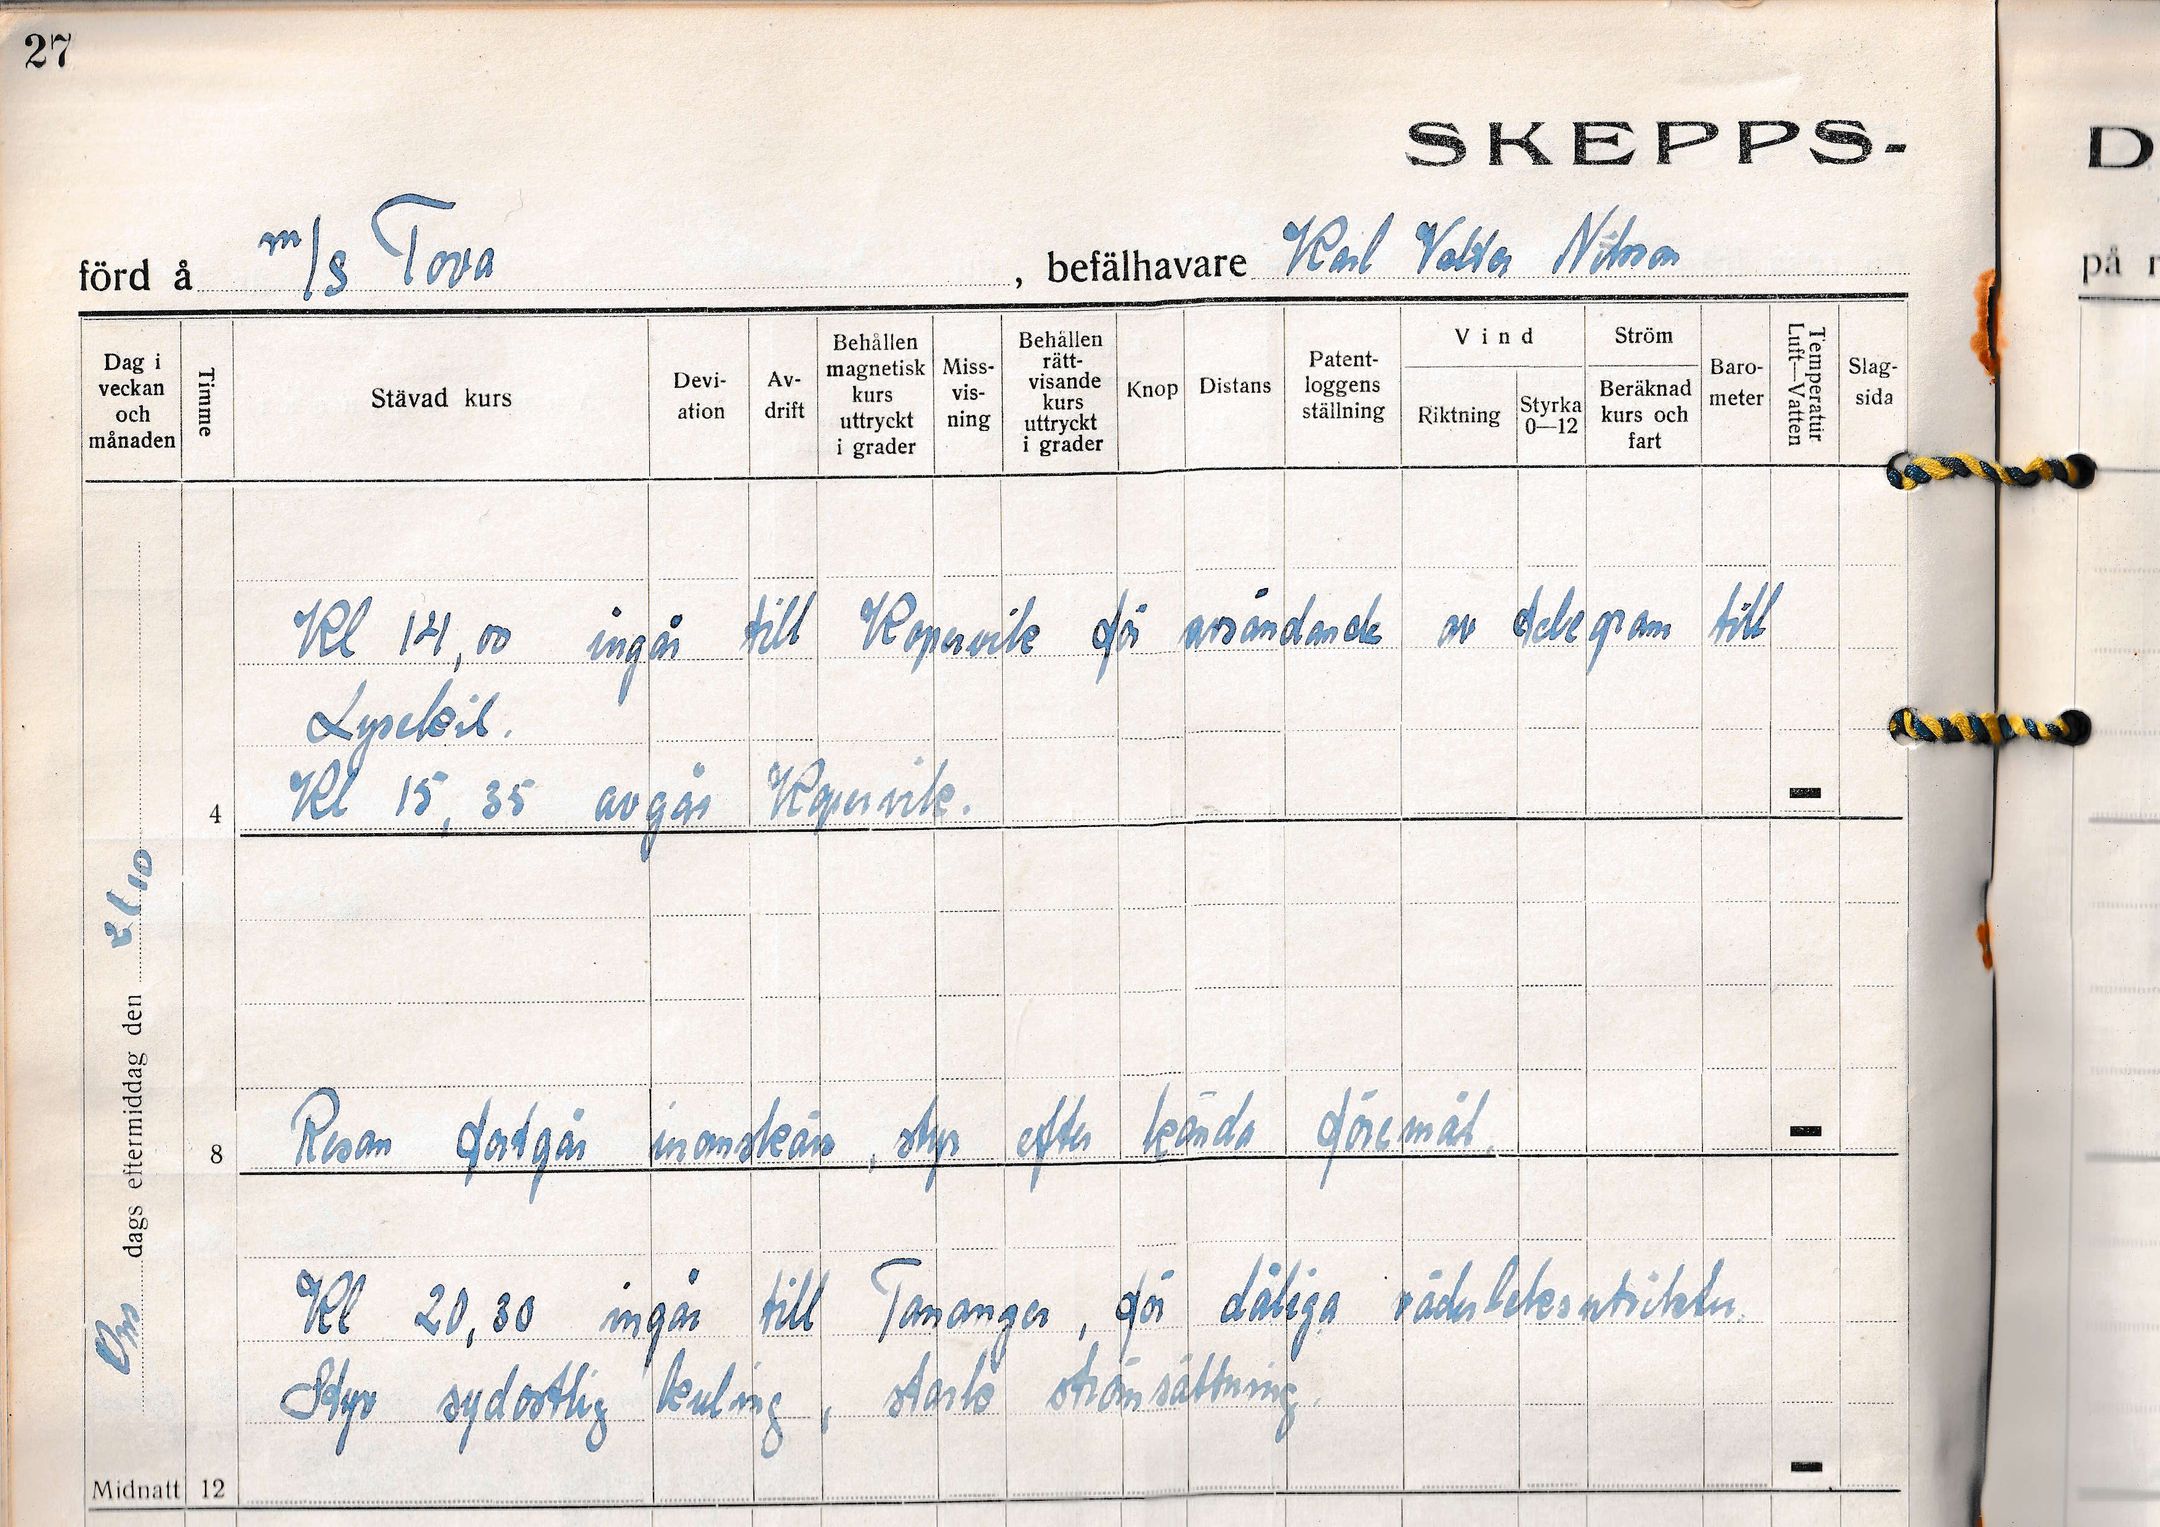 27
SKEPPS-
D
förd å m/s Tova, befälhavare Karl Valter Nilsson
på r
Dag i veckan och månaden
Timme
Stävad kurs
Devi-ation
Av-drift
Behållen magnetisk kurs uttryckt i grader
Miss-vis-ning
Behållen rätt-visande kurs uttryckt i grader
Knop
Distans
Patent-loggens ställning
Vind
Riktning
Styrka 0—12
Ström
Beräknad kurs och fart
Baro-meter
Temperatur Luft—Vatten
Slag-sida
Kl 14,00 ingår till Kopervik för avsändande av telegram till
Lysekil.
4 Kl 15,35 avgår Kopervik. -
8 Resan fortgår inomskärs, styr efter kända föremål. -
Kl 20,30 ingår till Tananger, för dåliga väderleksutsikter.
Styv sydostlig kuling, stark strömsättning.
-
Midnatt 12
Ons dags eftermiddag den 2/10